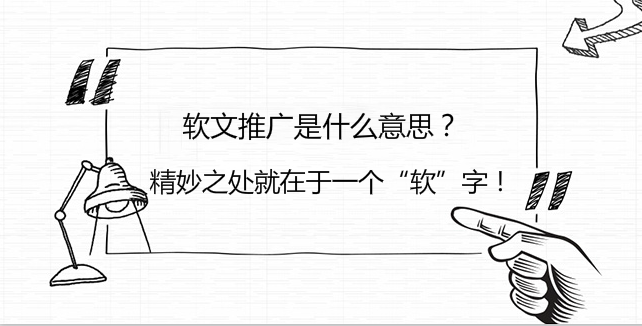 软文推广是什么意思？
精妙之处就在于一个“软”字！